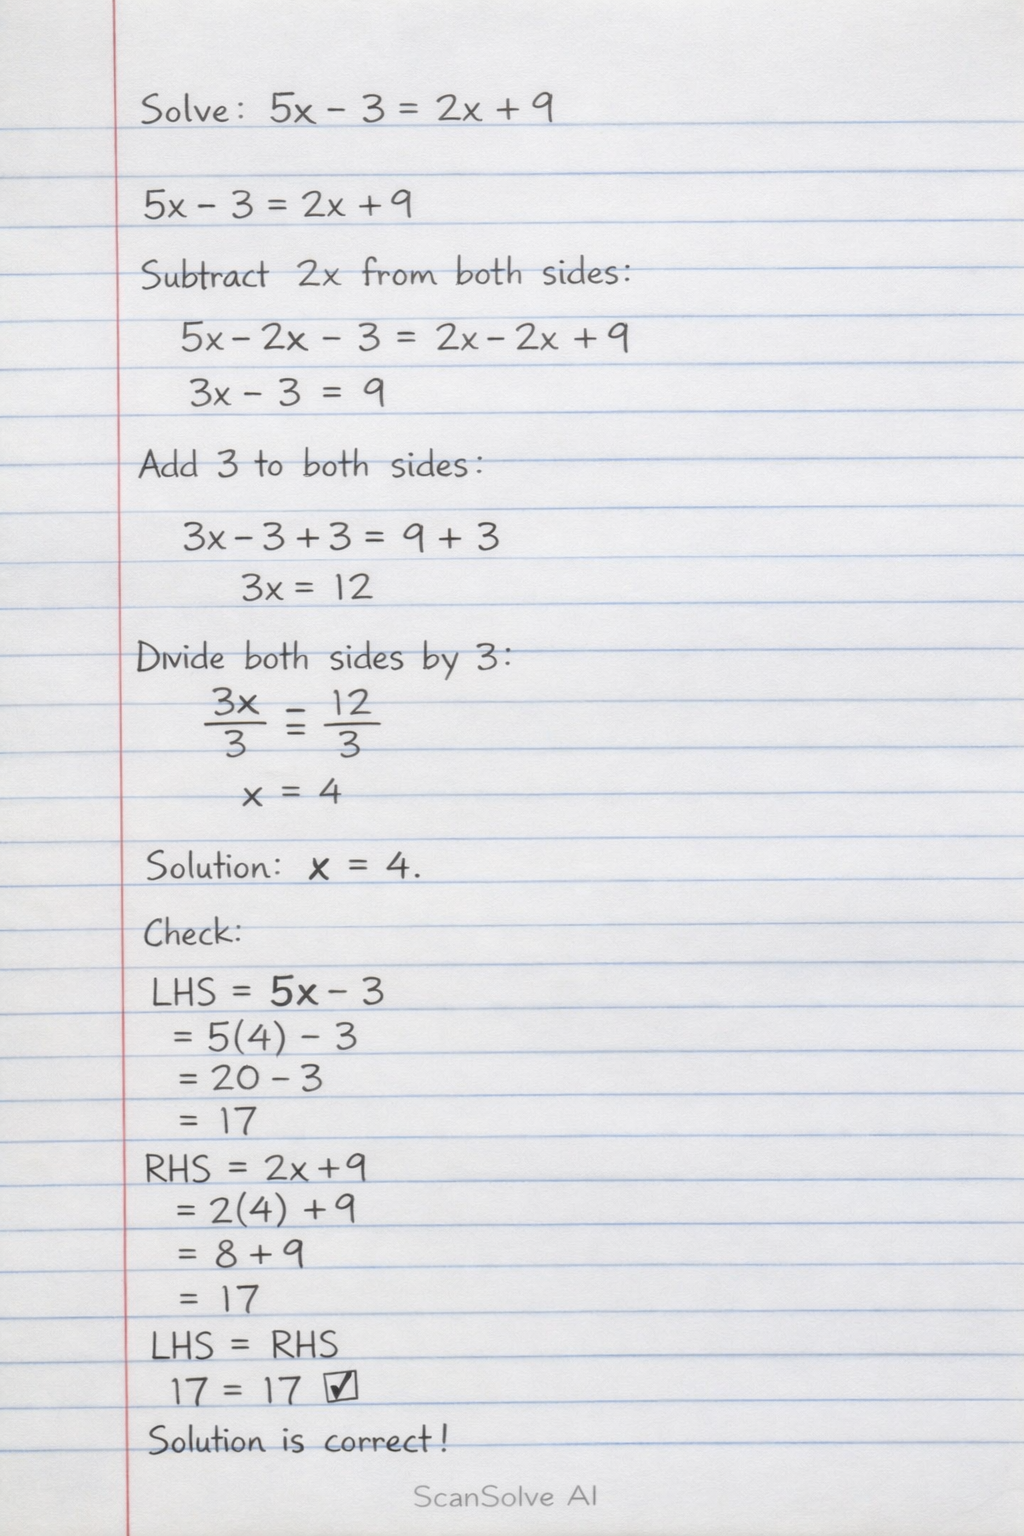 Solve: 5x - 3 = 2x + 9
5x - 3 = 2x + 9
Subtract 2x from both sides:
5x - 2x - 3 = 2x - 2x + 9
3x - 3 = 9
Add 3 to both sides:
3x - 3 + 3 = 9 + 3
3x = 12
Divide both sides by 3:
3x/3 = 12/3
x = 4
Solution: x = 4.
Check:
LHS = 5x - 3
= 5(4) - 3
= 20 - 3
= 17
RHS = 2x + 9
= 2(4) + 9
= 8 + 9
= 17
LHS = RHS
17 = 17 ☑
Solution is correct!
ScanSolve AI